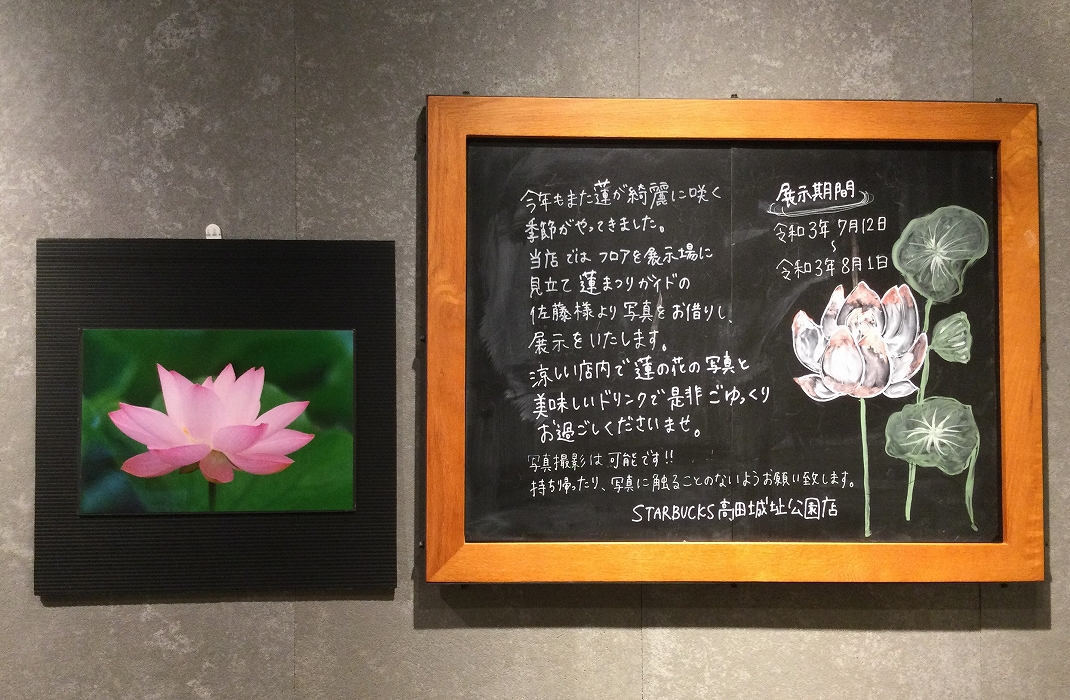 今年もまた蓮が綺麗に咲く
季節がやってきました。
当店では フロアを展示場に
見立て 蓮まつりガイドの
佐藤様より写真をお借りし、
展示をいたします。
涼しい店内で蓮の花の写真と
美味しいドリンクで是非ごゆっくり
お過ごしくださいませ。
写真撮影は可能です!!
持ち帰ったり、写真に触ることのないようお願い致します。
STARBUCKS高田城址公園店
展示期間
令和3年7月12日
~
令和3年8月1日